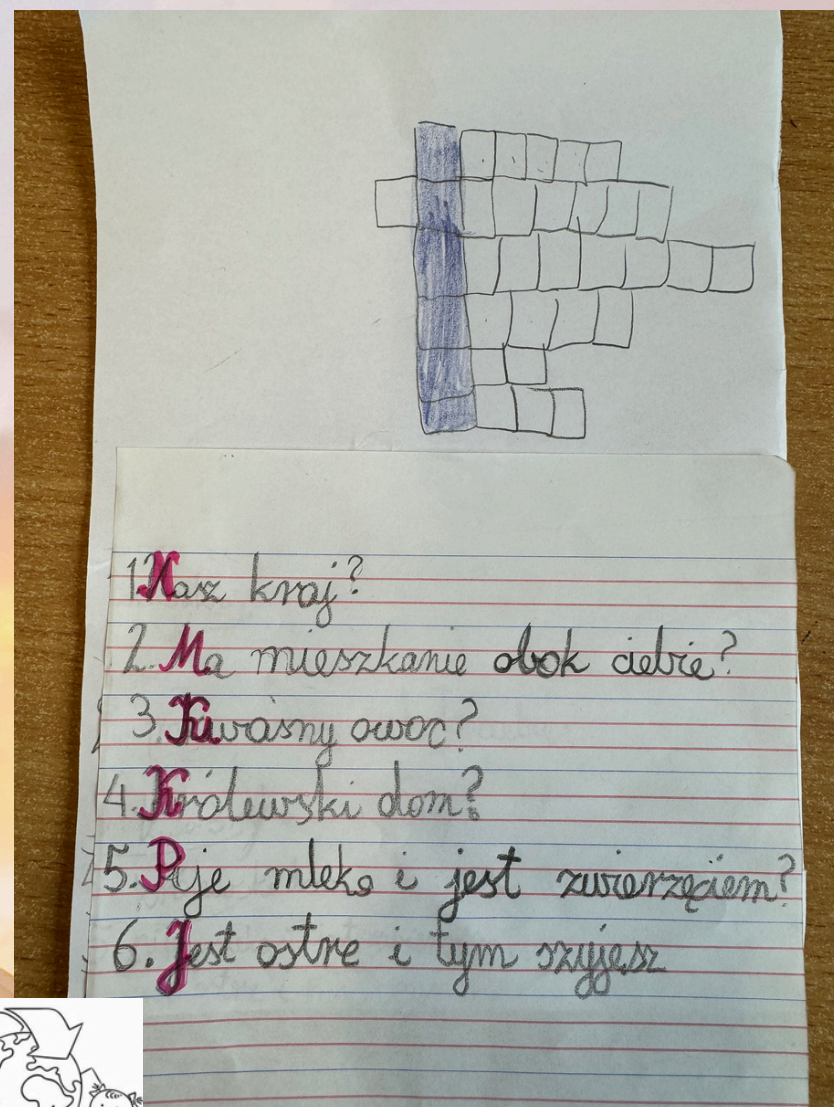 1. Nasz kraj?
2. Ma mieszkanie obok ciebie?
3. Kwaśny owoc?
4. Królewski dom?
5. Pije mleko i jest zwierzęciem?
6. Jest ostre i tym szyjesz